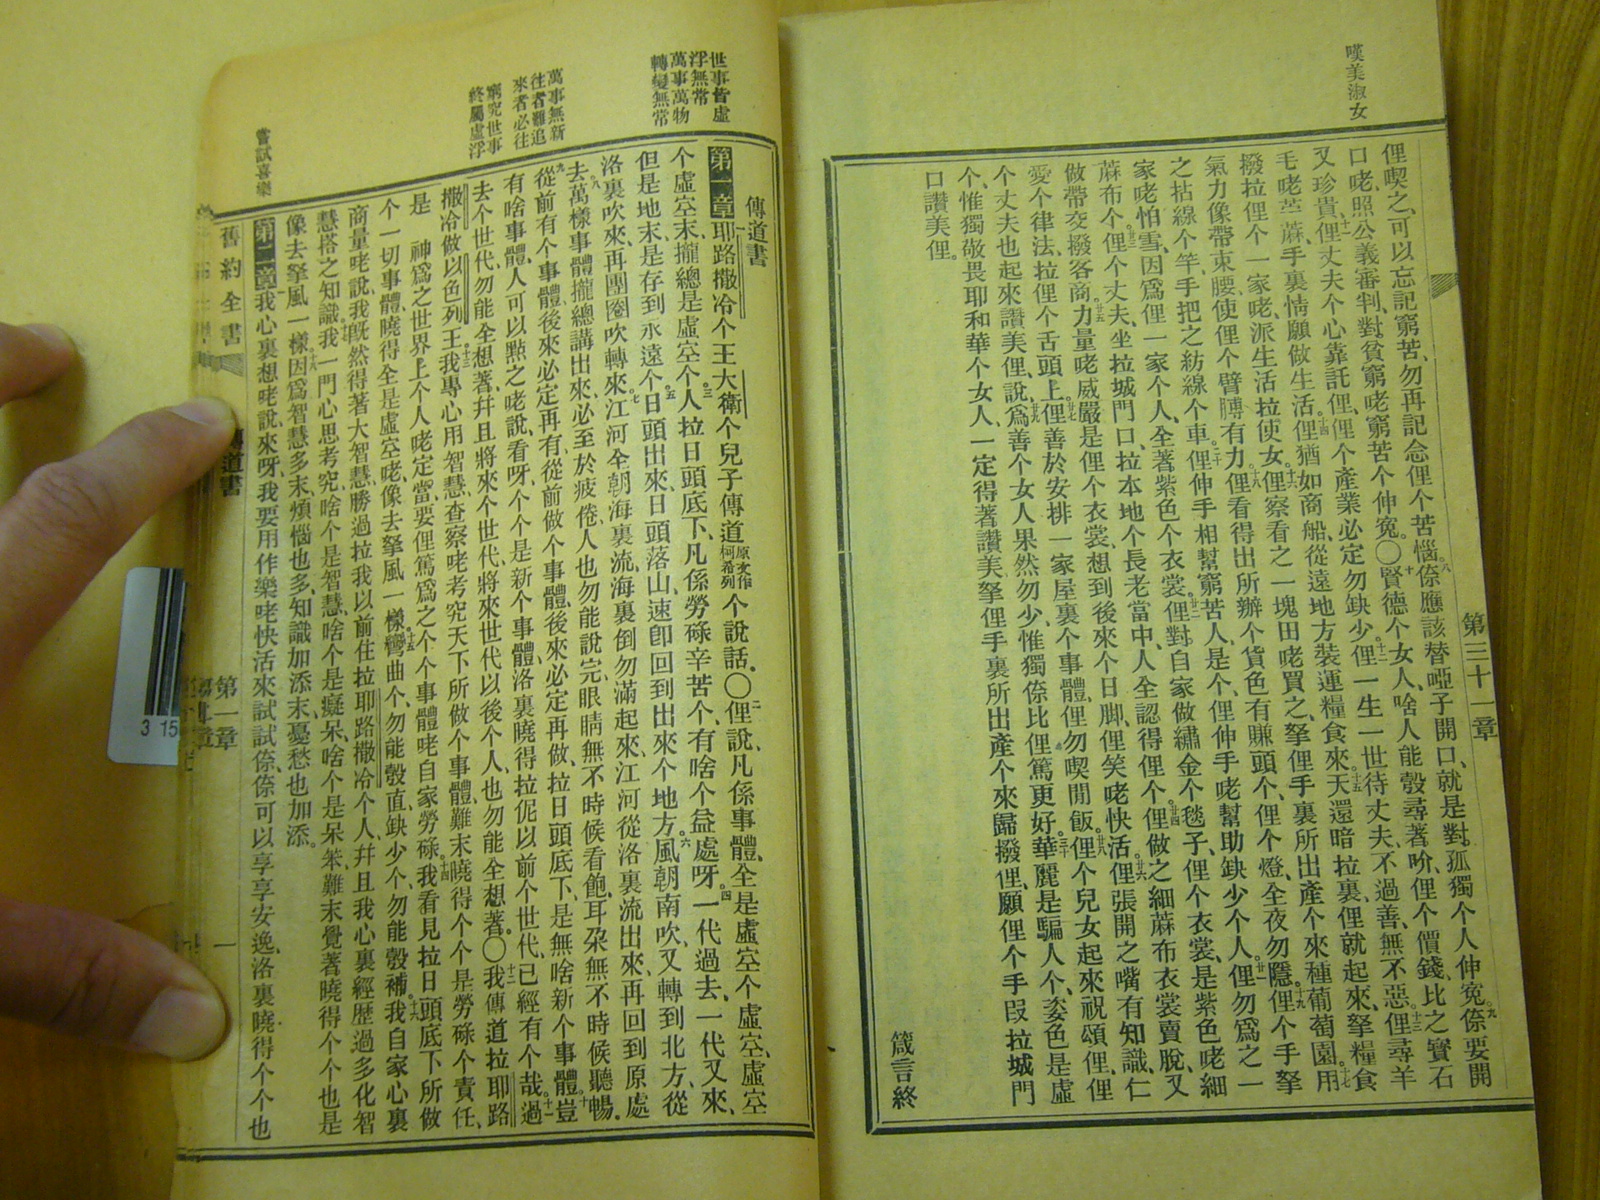 嘆美淑女
第三十一章
俚喫之、可以忘記窮苦、勿再記念俚个苦惱。八倷應該替啞子開口、就是對孤獨个人伸冤。九倷要開
口咾照公義審判、對貧窮咾窮苦个伸冤。〇十賢德个女人、啥人能彀尋著吤、俚个價錢、比之寶石
又珍貴。十一俚丈夫个心靠託俚、俚个產業必定勿缺少。十二俚一生一世待丈夫、不過善、無不惡。十三俚尋羊
毛咾苎蔴、手裏情願做生活。十四俚猶如商船、從遠地方裝運糧食來。十五天還暗拉裏、俚就起來、拏糧食
撥拉俚个一家咾、派生活拉使女。十六俚察看之一塊田咾買之、拏俚手裏所出產个來種葡萄園。十七用
氣力像帶束腰、使俚个臂膊有力。十八俚看得出所辦个貨色有賺頭个、俚个燈全夜勿隱。十九俚个手拏
之拈線个竿、手把之紡線个車。二十俚伸手相幫窮苦人、是个、俚伸手咾幫助缺少个人。廿一俚勿爲之一
家咾怕雪、因爲俚一家个人、全著紫色个衣裳。廿二俚對自家做繡金个毯子、俚个衣裳、是紫色咾細
蔴布个。廿三俚个丈夫、坐拉城門口、拉本地个長老當中、人全認得俚个。廿四俚做之細蔴布衣裳賣脫、又
做帶交撥客商。廿五力量咾威嚴、是俚个衣裳、想到後來个日脚、俚笑咾快活。廿六俚張開之嘴有知識、仁
愛个律法、拉俚个舌頭上。廿七俚善於安排一家屋裏个事體、俚勿喫閒飯。廿八俚个兒女起來祝頌俚、俚
个丈夫也起來讚美俚、說、廿九爲善个女人果然勿少、惟獨倷比俚篤更好。三十華麗是騙人个、姿色是虛
个、惟獨敬畏耶和華个女人、一定得著讚美。拏俚手裏所出產个來歸撥俚、願俚个手叚、拉城門
口讚美俚。
箴言終
世事皆虛
浮無常
萬事萬物
轉變無常
萬事無新
往者難追
來者必往
窮究世事
終屬虛浮
嘗試喜樂
傳道書
第一章耶路撒冷个王、大衛个兒子、傳道原文作柯希列个說話。〇二俚說、凡係事體、全是虛空个虛空、虛空
个虛空末、攏總是虛空个。三人拉日頭底下、凡係勞碌辛苦个、有啥个益處呀。四一代過去、一代又來、
但是地末、是存到永遠个。五日頭出來、日頭落山、速卽回到出來个地方。六風朝南吹、又轉到北方、從
洛裏吹來、再團圈吹轉來。七江河全朝海裏流、海裏倒勿滿起來、江河從洛裏流出來、再回到原處
去。八萬樣事體攏總講出來、必至於疲倦、人也勿能說完、眼睛無不時候看飽、耳朵無不時候聽暢。
九從前有个事體、後來必定再有、從前做个事體、後來必定再做、拉日頭底下、是無啥新个事體。十豈
有啥事體、人可以點之咾說、看呀、个个是新个事體、洛裏曉得拉伲以前个世代、已經有个哉。十一過
去个世代、勿能全想著、幷且將來个世代、將來世代以後个人、也勿能全想著。〇十二我傳道拉耶路
撒冷、做以色列王。十三我專心用智慧查察咾考究天下所做个事體、難末曉得个个是勞碌个責任、
是 神爲之世界上个人咾定當、要俚篤爲之个个事體咾自家勞碌。十四我看見拉日頭底下所做
个一切事體、曉得全是虛空咾、像去拏風一樣。十五彎曲个、勿能彀直、缺少个、勿能彀補。十六我自家心裏
商量咾說、我旣然得著大智慧、勝過拉我以前住拉耶路撒冷个人、幷且我心裏經歷過多化智
慧搭之知識。十七我一門心思考究、啥个是智慧、啥个是癡呆、啥个是呆笨、難末覺著曉得个个也是
像去拏風一樣。十八因爲智慧多末、煩惱也多、知識加添末、憂愁也加添。
第二章我心裏想咾說、來呀、我要用作樂咾快活來試試倷、倷可以享享安逸、洛裏曉得个个也
舊約全書
傳道書
第一章
一
3 15